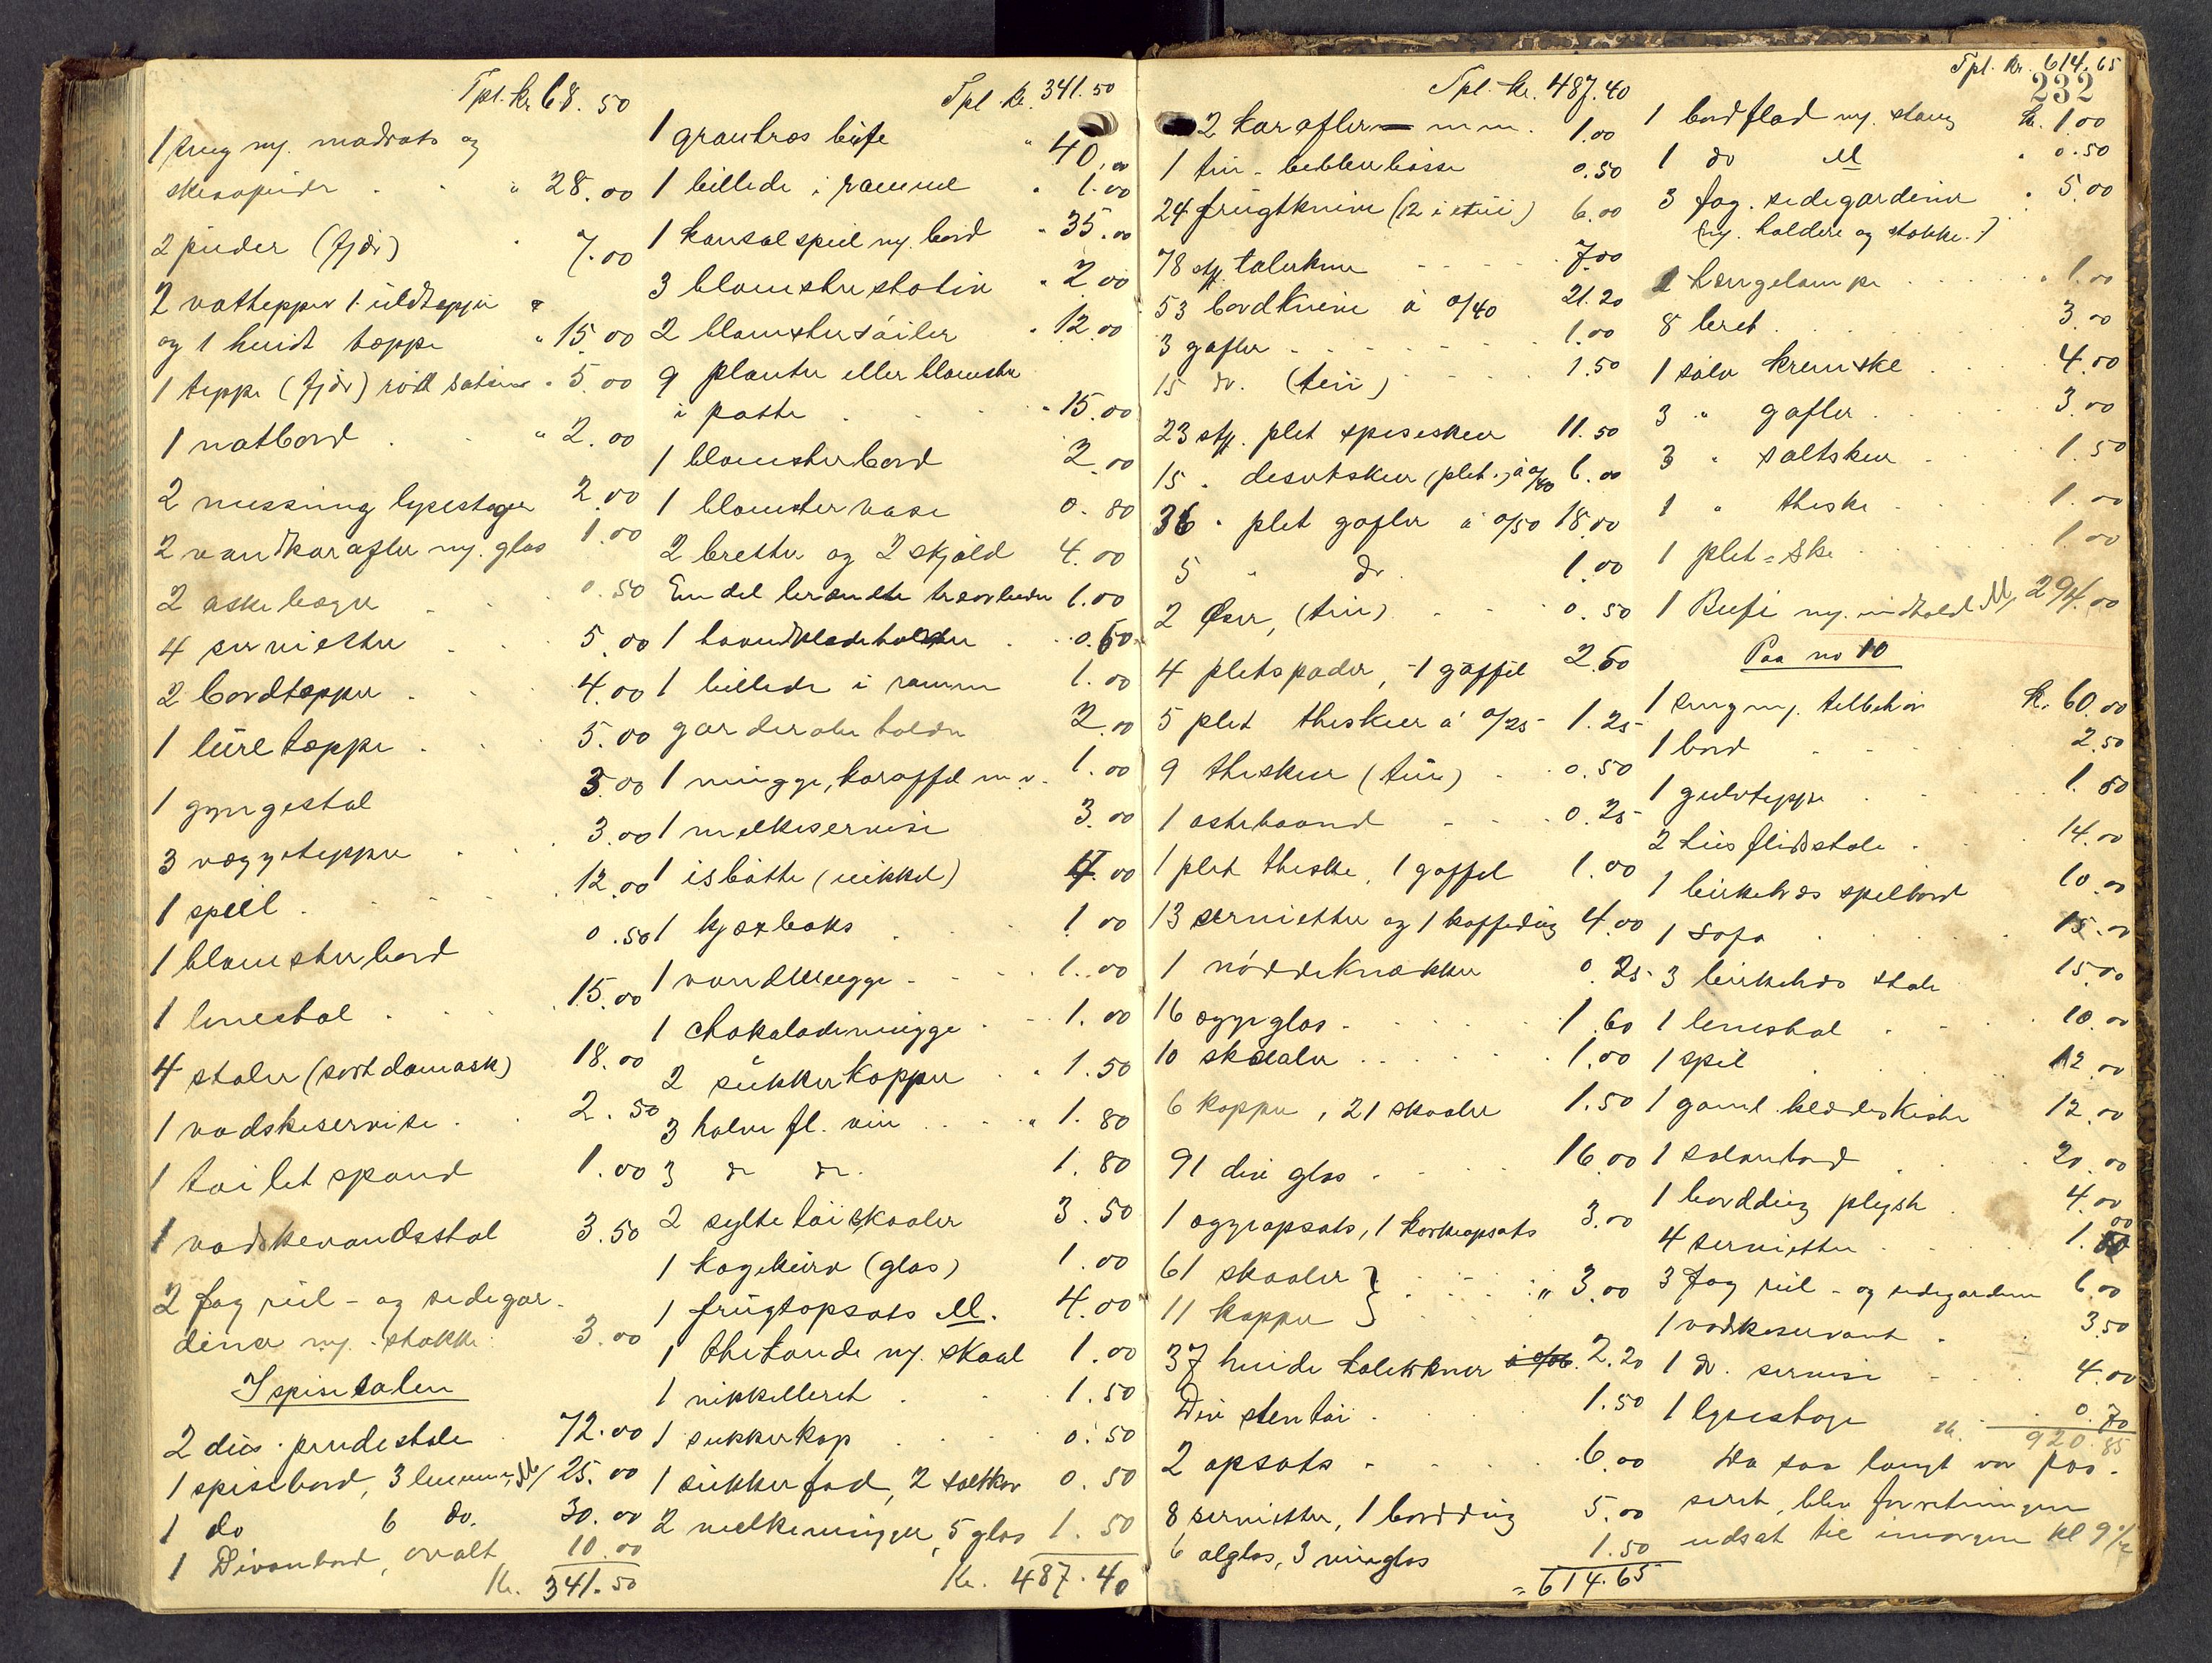 Tpl. kr 68.50
1 seng m/. madrats og
skråpude " 28.00
2 puder (fjær) 7.00
2 vattepper 1 uldteppe
og 1 hvidt tæppe " 15.00
1 teppe (fjdr) rødt satin " 5.00
1 natbord " 2.00
2 messing lysestager 2.00
2 vandkarafler m/. glas 1.00
2 askebægre 0.50
4 servietter 5.00
2 bordtepper 4.00
1 lüretæppe 5.00
1 gyngestol 3.00
3 vægtepper 3.00
1 speil 12.00
1 blomsterbord 0.50
1 lenestol 15.00
4 stoler (sort damask) 18.00
1 vadskeservise 2.50
1 toiletspand 1.00
1 vadskevandsstol 3.50
2 fag rül- og sidegar-
diner m/. stokke 3.00
I spisesalen
2 dus. pindestole 72.00
1 spisebord, 3 lemmer, M/ 25.00
1 do 6 do. 30.00
1 Divanbord, ovalt 10.00
Kr. 341.50
Tpl kr. 341.50
1 grantræs büfe " 40.00
1 billede i ramme " 1.00
1 konsolspeil m/. bord " 35.00
3 blomsterstativ " 2.00
2 blomstersöiler " 12.00
9 planter eller blomster
i potte " 15.00
1 blomsterbord 2.00
1 blomstervase 0.80
2 bretter og 2 skjold 4.00
En del brændte træarbeider 1.00
1 haandklædeholder 0.60
1 billede i ramme 1.00
garderobeholder 2.00
1 mugge, karaffel m.v. 1.00
1 melkeservise 3.00
1 isbötte (nikkel) 4.00
1 kjæxboks 1.00
1 vandmugge 1.00
1 chokolademügge 1.00
2 sükkerkopper " 1.50
3 halve fl. vin " 1.80
3 do do. 1.80
2 syltetöiskaaler 3.50
1 kagekurv (glas) 1.00
1 frügtopsats M. 4.00
1 thekande m/. skaal 1.00
1 nikkelbret 1.50
1 sukkerkop 0.50
1 sükkerfad, 2 saltkar 0.50
2 melkemugger, 5 glas 1.50
Kr. 487.40
Tpl. kr. 487.40
2 karafler m.m. 1.00
1 tin-bebberbösse 0.50
24 frügtknive (12 i etui) 6.00
78 stk. talerkner 7.00
53 bordknive á 0/40 21.20
3 gafler 1.00
15 do. (tin) 1.50
23 stk. plet spiseskeer 11.50
15 " desertskeer (plet.) á 0/40 6.00
36 " plet gafler á 0/50 18.00
5 " do. 1.00
2 Öser, (tin) 0.50
4 pletspader, 1 gaffel 2.50
5 plet theskeer á 0/25 1.25
9 theskeer (tin) 0.50
1 ostehaand 0.25
1 plet theske, 1 gaffel 1.00
13 servietter og 1 kaffedug 4.00
1 nöddeknækker 0.25
16 æggeglas 1.60
10 skaaler 1.00
6 kopper, 21 skaaler 1.50
91 div glas 16.00
1 æggeopsats, 1 kakeopsats 3.00
61 skaaler }
11 kopper } " 3.00
37 hvide talerkner á 0/06 2.20
Div stentöi 1.50
2 opsats 6.00
8 servietter, 1 borddug 5.00
6 ølglas, 3 vinglas 1.50
= 614.65
Tpl. kr. 614.65
232
1 bordflad m/. stang kr. 1.00
1 do M " 0.50
3 fag. sidegardiner " 5.00
(m/. holdere og stokke.)
1 hengelampe " 1.00
8 bret 3.00
1 sølv kremske 4.00
3 " gafler 3.00
3 " saltskeer 1.50
1 " theske 1.00
1 plet-ske 1.00
1 Büfe m/. indhold M/ 294.00
Paa no 10
1 seng m/. tilbehör k. 60.00
1 bord 2.50
1 gulvteppe 1.50
2 hüsflidsstole 14.00
1 birketræs spilbord 10.00
1 Sofa 15.00
3 birketræs stole 15.00
1 lenestol 10.00
1 spil 12.00
1 gaml. klædeskiste 12.00
1 salonbord 20.00
1 borddug plysh 4.00
4 servietter 1.00
3 fag rül- og sidegardiner 6.00
1 vadskeservant 3.50
1 do. servise 4.00
1 lysestage 0.70
kr. 920.85
Da saa langt var pas-
seret, blev forretningen
udsat til imorgen kl 9 1/2